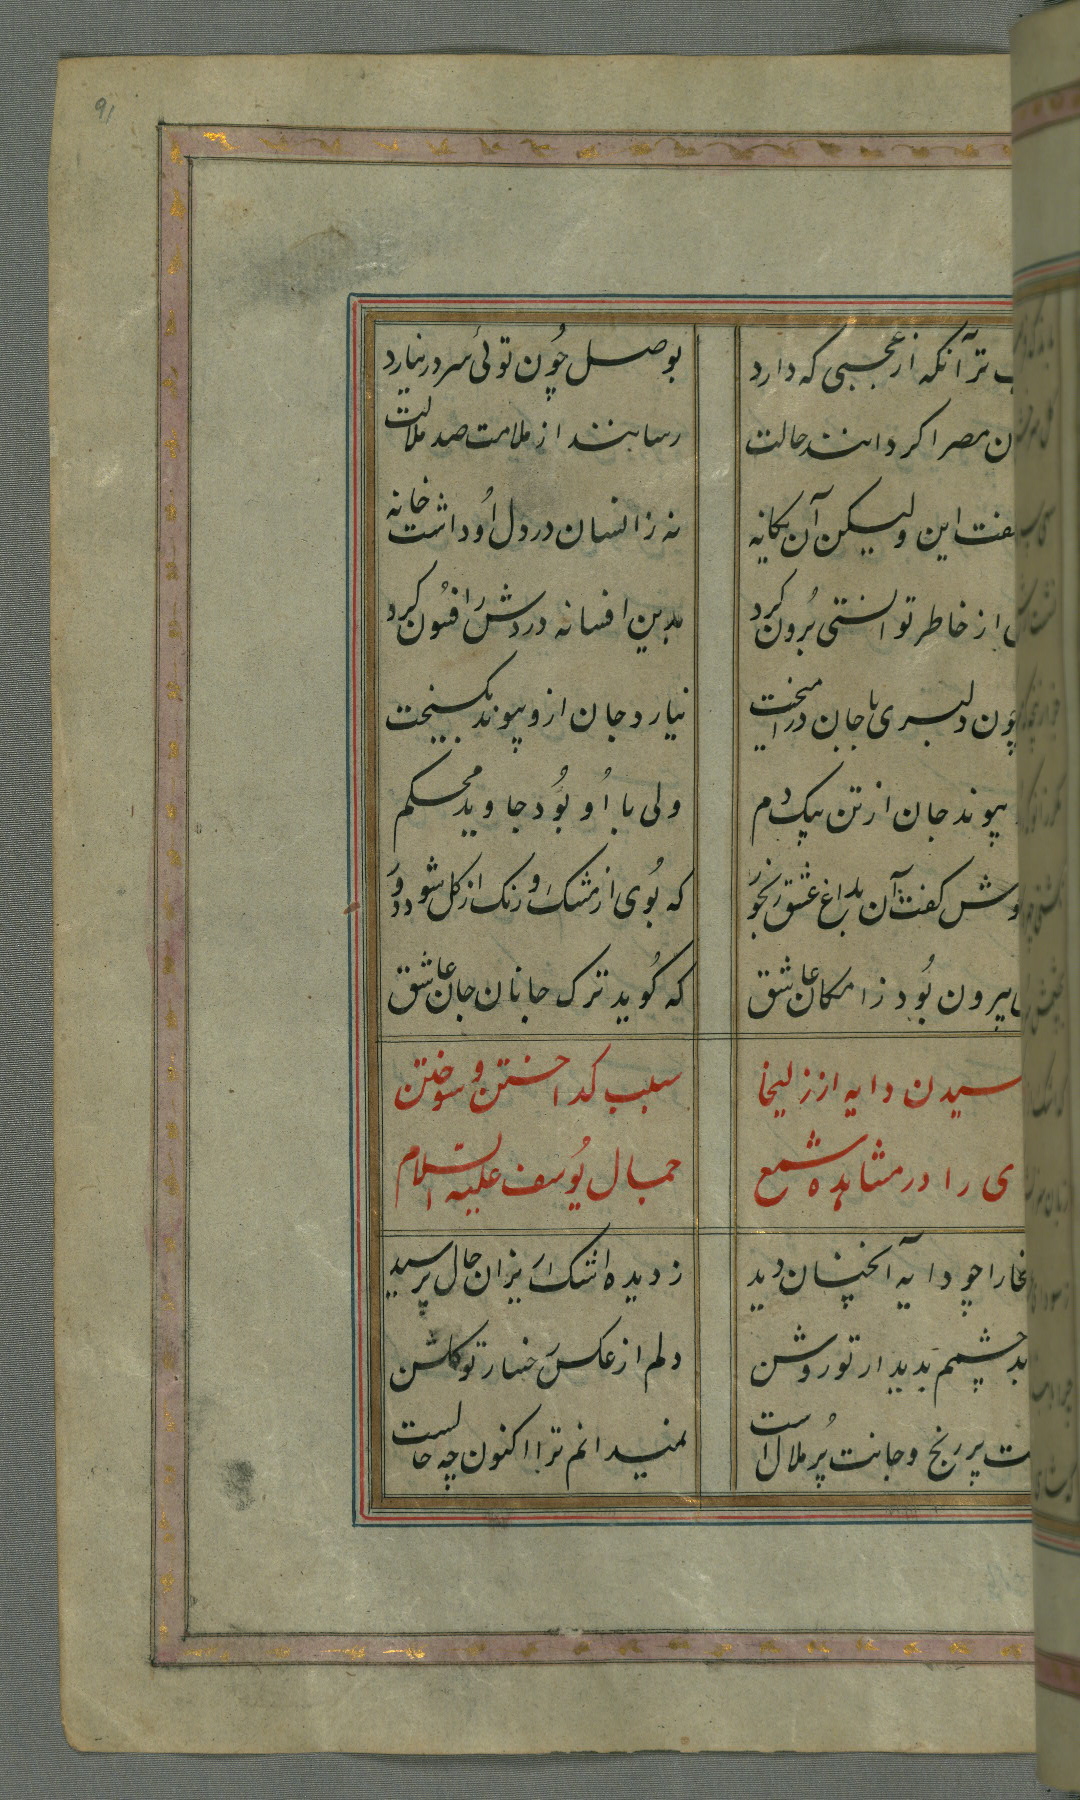 91
تر آنکه از عجبی که دارد بوصل چون توئی سر در نیارد
مصر اگر دانند حالت رسانند از ملامت صد ملالت
این ولیکن آن یکانه نه زانسان در دل او داشت خانه
از خاطر توانستی برون کرد بدین افسانه دردش را فسون کرد
چون دلبری با جان در آمیخت نیارد جان ازو پیوند بگسیخت
پیوند جان از تن بیک دم ولی با او بود جاوید محکم
کفت آن بداغ عشق رنجور که بوی از مشک و رنک از کل شود دور
بیرون بود ز امکان عاشق که کوید ترک جانان جان عاشق
دایه از زلیخا سبب کداختن و سوختن
را در مشاهده شمع جمال یوسف علیه السلام
چو دایه آنچنان دید ز دیده اشک ریزان حال پرسید
چشمم بدیدار تو روشن دلم از عکس رخسار تو کلشن
پر رنج و جانت پر ملال است نمیدانم ترا اکنون چه حالست